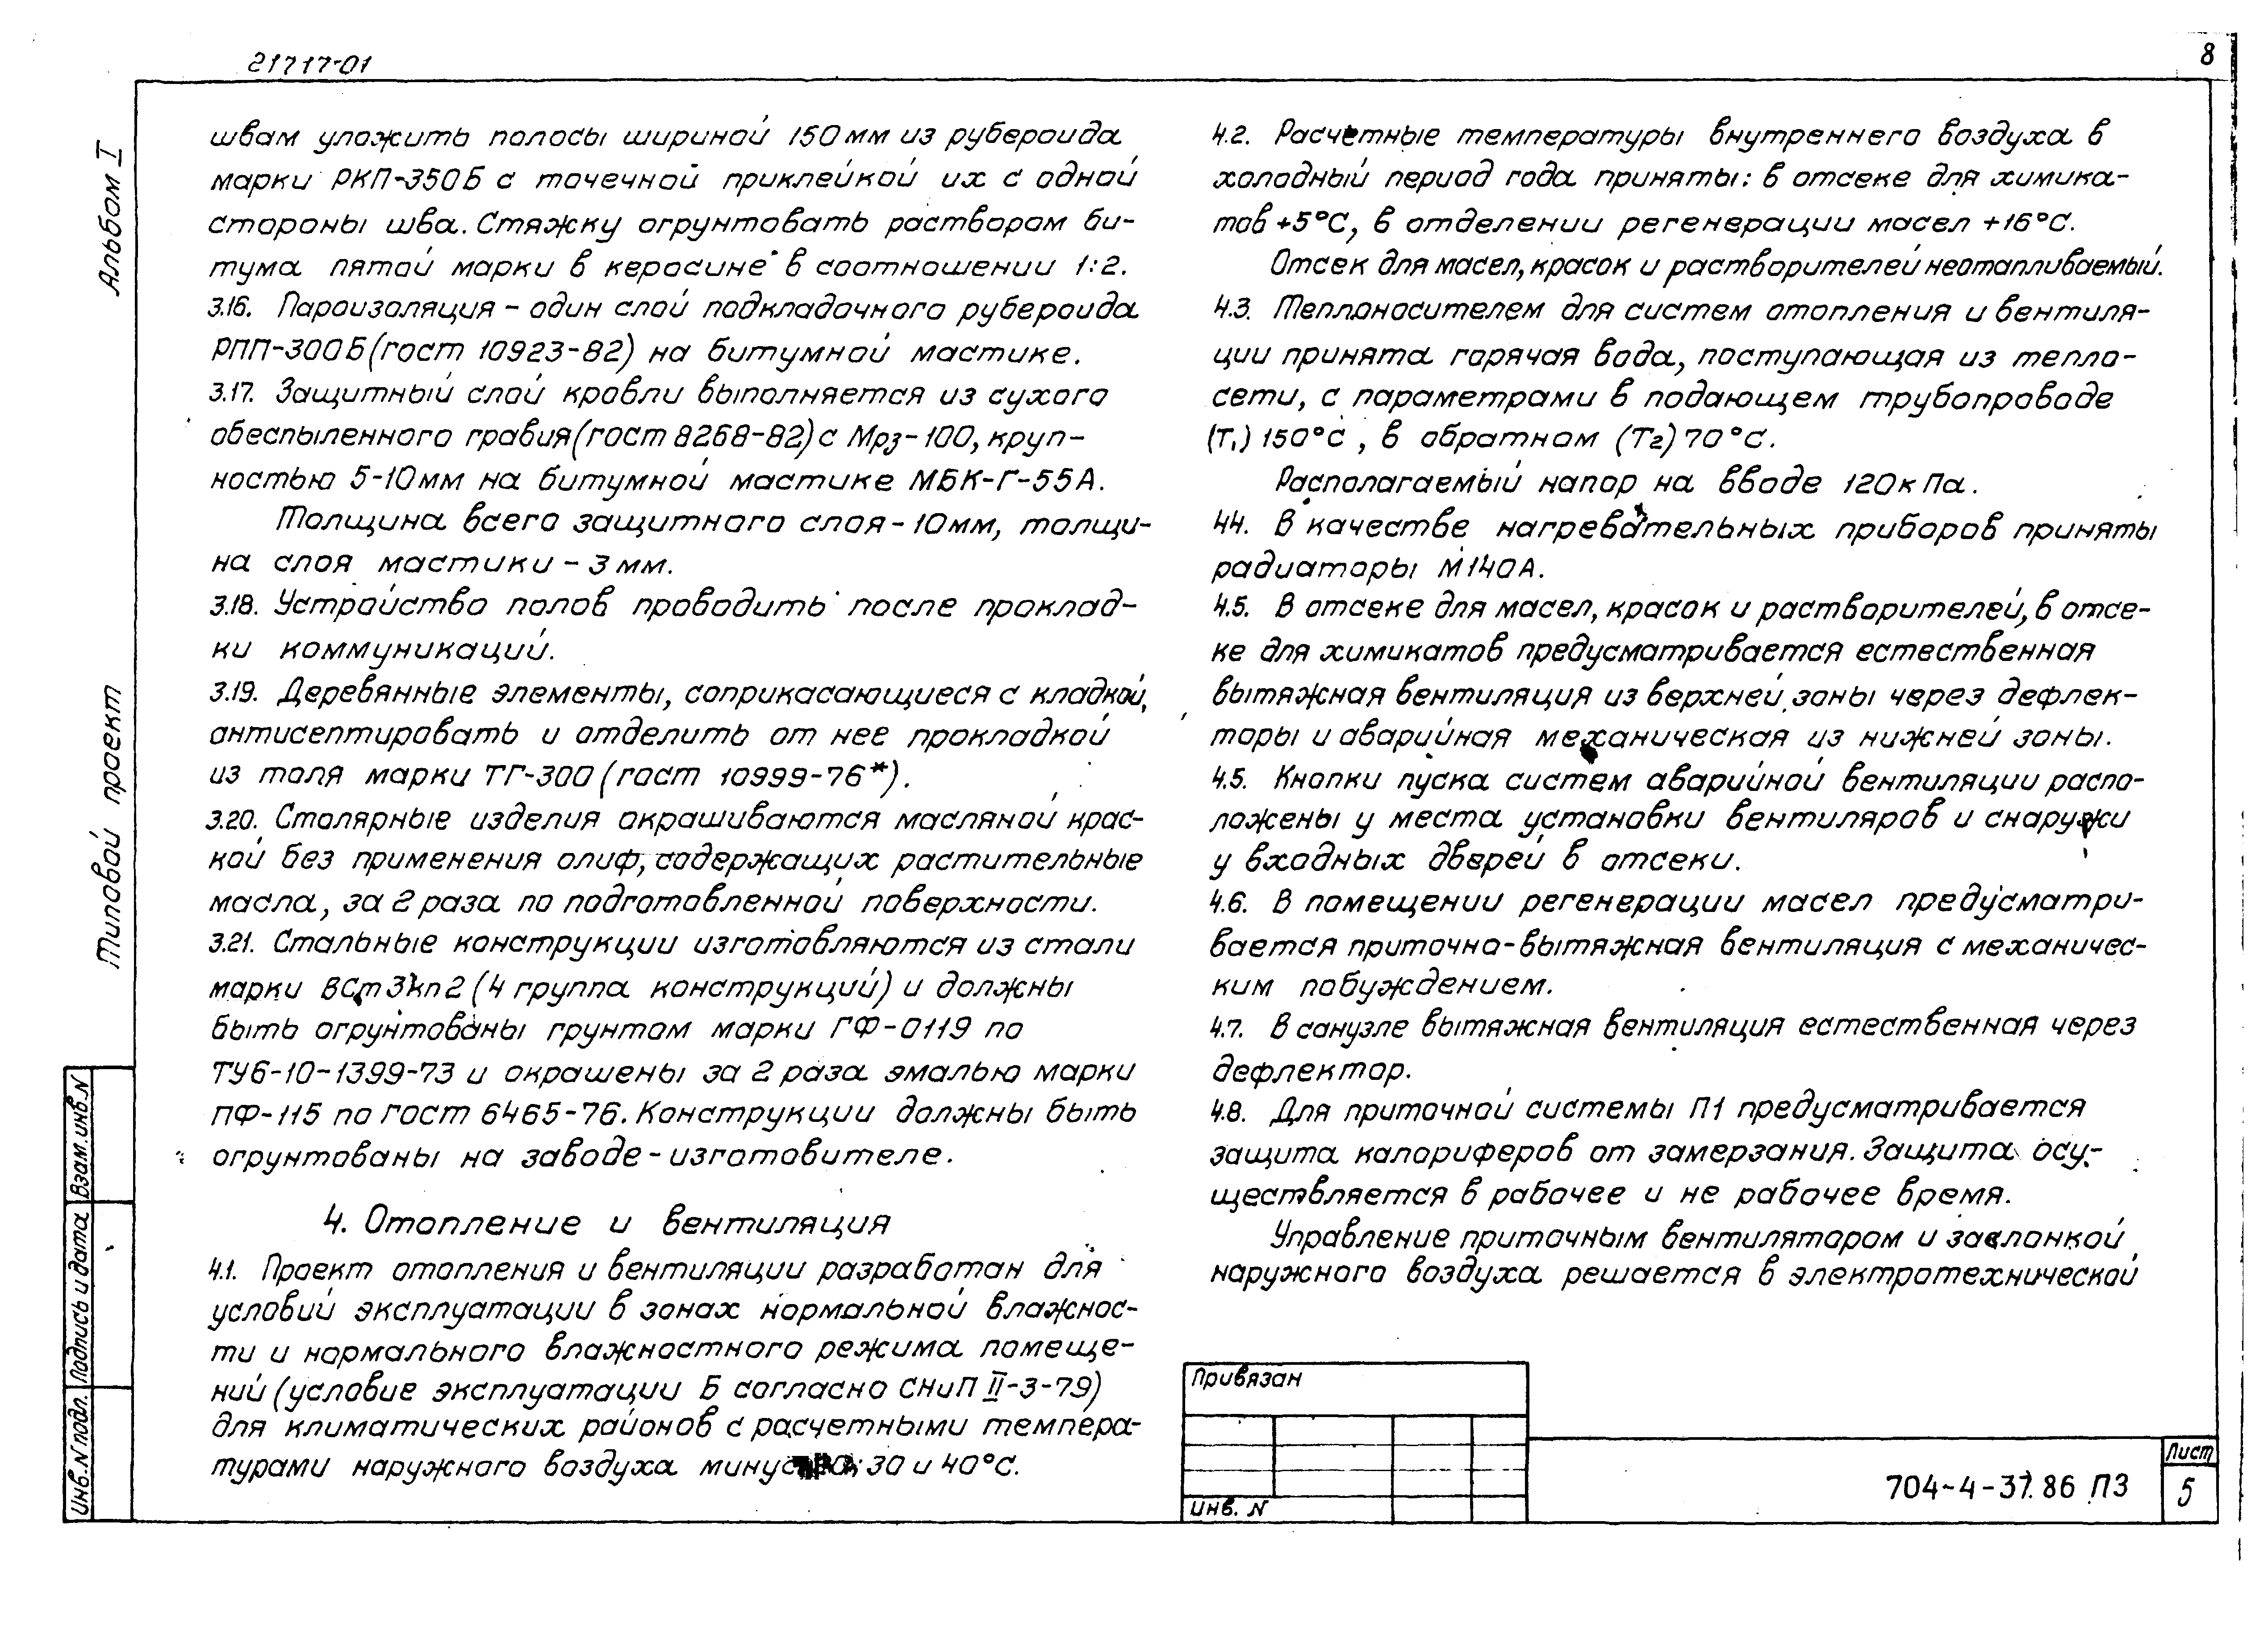 21717-01
8
Альбом I
Типовой проект
швам уложить полосы шириной 150 мм из рубероида
марки РКП-350Б с точечной приклейкой их с одной
стороны шва. Стяжку огрунтовать раствором би-
тума пятой марки в керосине в соотношении 1:2.
3.16. Пароизоляция - один слой подкладочного рубероида
РПП-300Б (гост 10923-82) на битумной мастике.
3.17. Защитный слой кровли выполняется из сухого
обеспыленного гравия (гост 8268-82) с Мрз-100, круп-
ностью 5-10 мм на битумной мастике МБК-Г-55А.
Толщина всего защитного слоя - 10 мм, толщи-
на слоя мастики - 3 мм.
3.18. Устройство полов проводить после проклад-
ки коммуникаций.
3.19. Деревянные элементы, соприкасающиеся с кладкой,
антисептировать и отделить от нее прокладкой
из толя марки ТГ-300 (гост 10999-76*).
3.20. Столярные изделия окрашиваются масляной крас-
кой без применения олиф, содержащих растительные
масла, за 2 раза по подготовленной поверхности.
3.21. Стальные конструкции изготовляются из стали
марки ВСт3кп2 (4 группа конструкций) и должны
быть огрунтованы грунтом марки ГФ-0119 по
ТУ6-10-1399-73 и окрашены за 2 раза эмалью марки
ПФ-115 по ГОСТ 6465-76. Конструкции должны быть
огрунтованы на заводе-изготовителе.
4. Отопление и вентиляция
4.1. Проект отопления и вентиляции разработан для
условий эксплуатации в зонах нормальной влажнос-
ти и нормального влажностного режима помеще-
ний (условие эксплуатации Б согласно СНиП II-3-79)
для климатических районов с расчетными темпера-
турами наружного воздуха минус 30 и 40°С.
4.2. Расчетные температуры внутреннего воздуха в
холодный период года приняты: в отсеке для химика-
тов +5°С, в отделении регенерации масел +16°С.
Отсек для масел, красок и растворителей неотапливаемый.
4.3. Теплоносителем для систем отопления и вентиля-
ции принята горячая вода, поступающая из тепло-
сети, с параметрами в подающем трубопроводе
(Т1) 150°С, в обратном (Т2) 70°С.
Располагаемый напор на вводе 120 кПа.
4.4. В качестве нагревательных приборов приняты
радиаторы М140А.
4.5. В отсеке для масел, красок и растворителей, в отсе-
ке для химикатов предусматривается естественная
вытяжная вентиляция из верхней зоны через дефлек-
торы и аварийная механическая из нижней зоны.
4.5. Кнопки пуска систем аварийной вентиляции распо-
ложены у места установки вентиляров и снаружи
у входных дверей в отсеки.
4.6. В помещении регенерации масел предусматри-
вается приточно-вытяжная вентиляция с механичес-
ким побуждением.
4.7. В санузле вытяжная вентиляция естественная через
дефлектор.
4.8. Для приточной системы П1 предусматривается
защита калориферов от замерзания. Защита осу-
ществляется в рабочее и не рабочее время.
Управление приточным вентилятором и заслонкой
наружного воздуха решается в электротехнической
Взам. инв. N
Подпись и дата
Инв. N подл.
Привязан
Инв. N
704-4-37.86 ПЗ
Лист
5